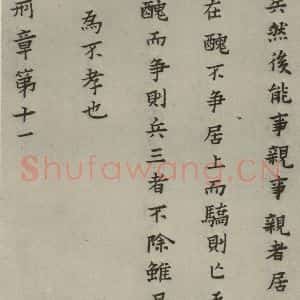 矣然後能事親事親者居
在醜不争居上而驕則亡
醜而争則兵三者不除雖
為不孝也
刑章第十一
Shufawang.CN